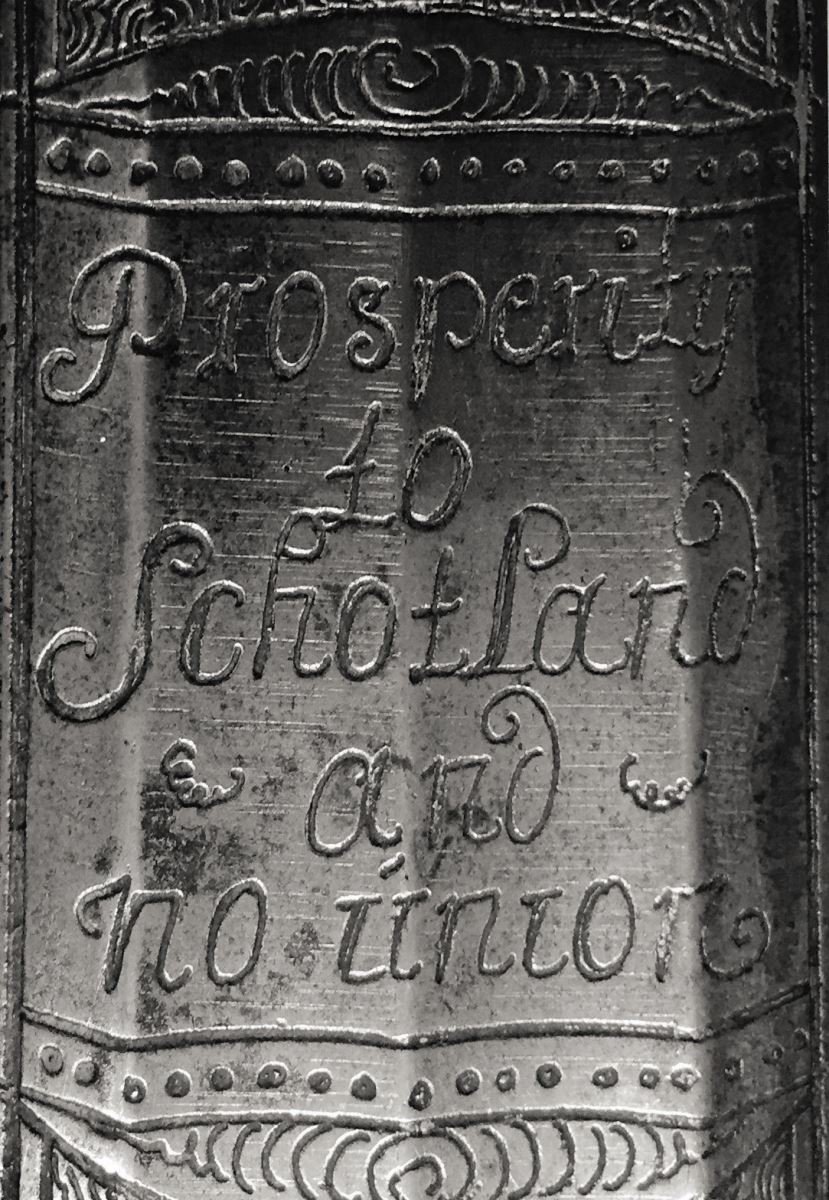 Prosperity
to
Schotland
and
no únion